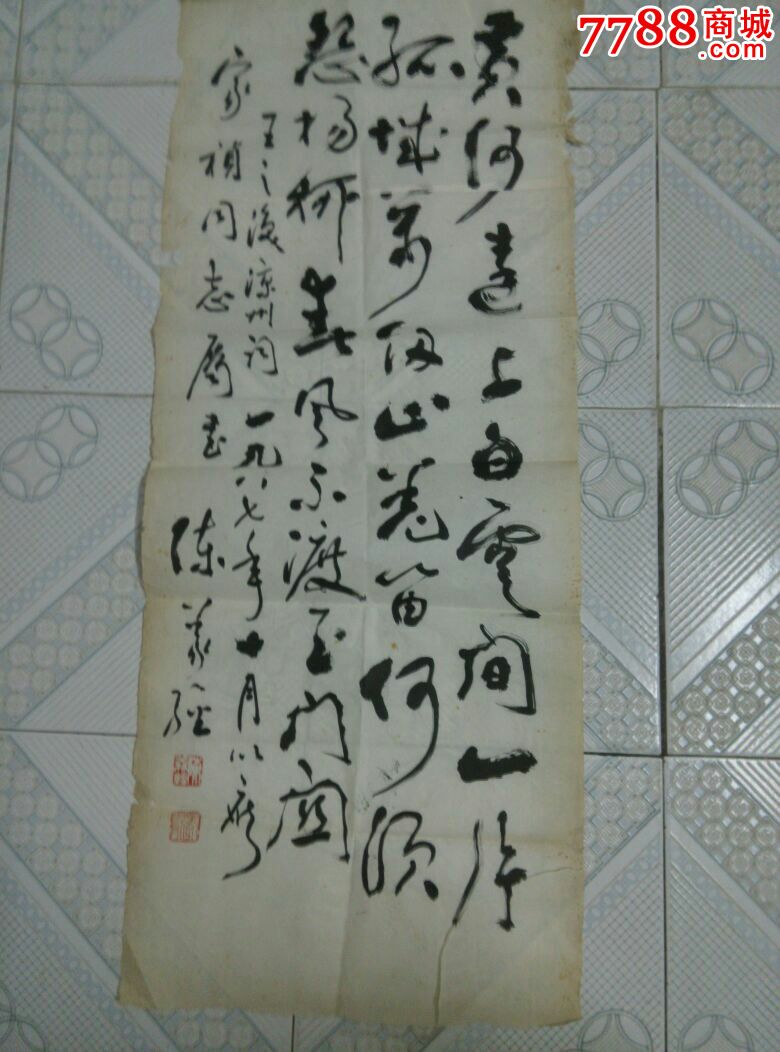 7788商城
.com
黄河远上白云间一片
孤城万仞山羌笛何须
怨杨柳春风不渡玉门关
王之涣凉州词 一九八七年十月以应
家祯同志属书 陈義经